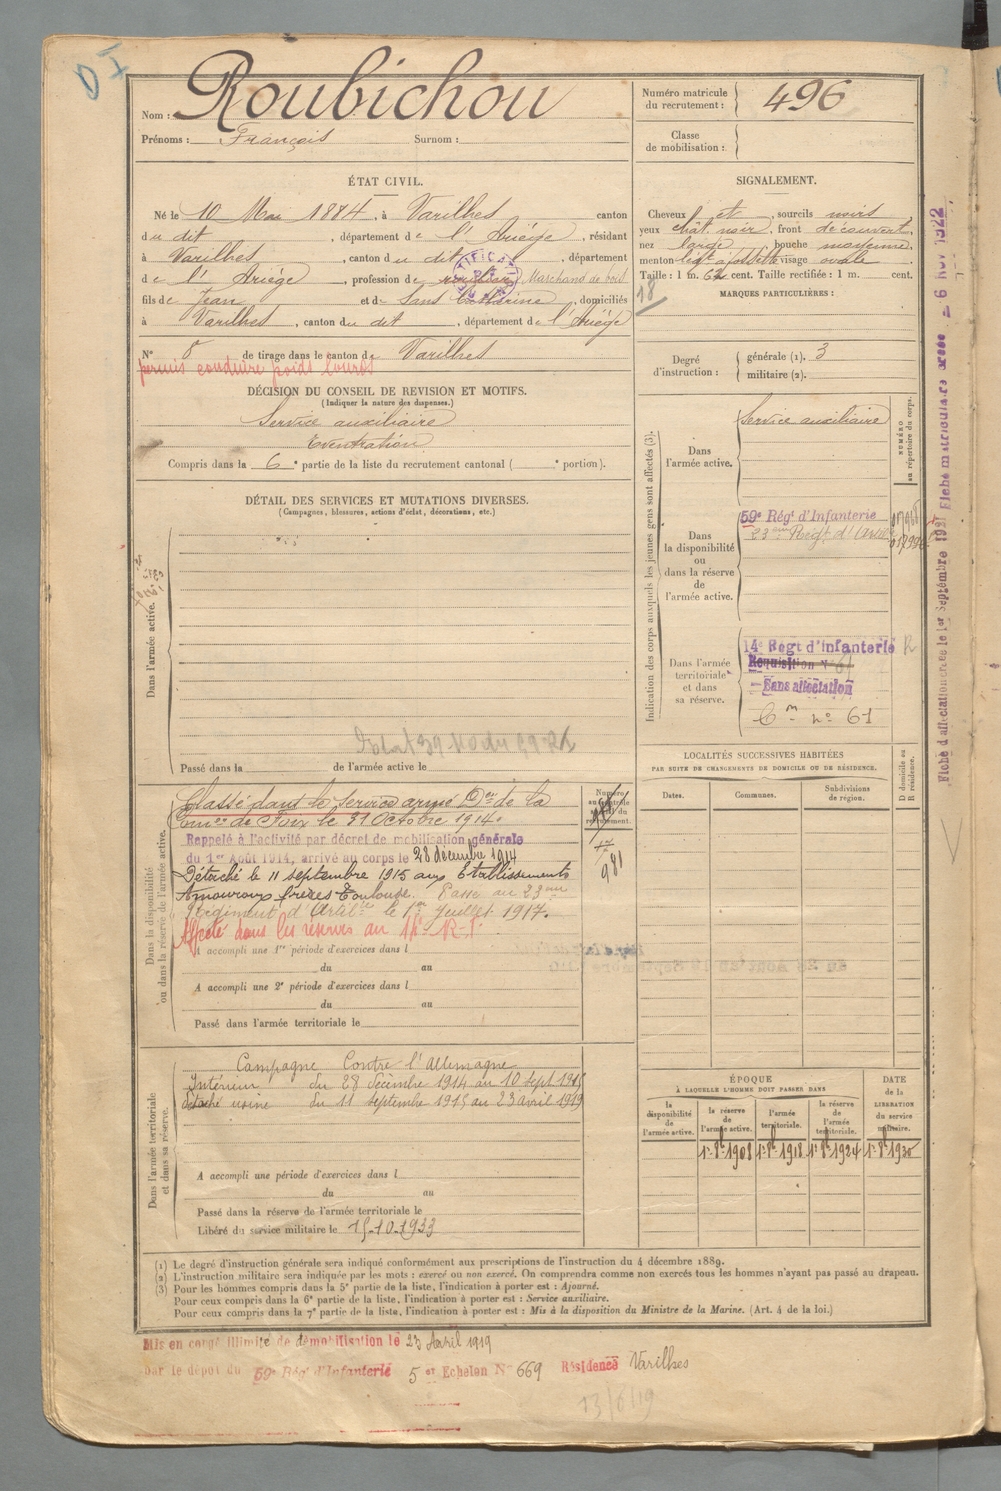 Nom : Roubichou
Prénoms : François Surnom :
Numéro matricule du recrutement : 496
Classe de mobilisation :
ÉTAT CIVIL.
Né le 10 Mai 1884, à Varilhes canton
du dit, département de l'Ariège, résidant
à Varilhes, canton du dit, département
de l'Ariège, profession de Marchand de bois
fils de Jean et de Sans Catherine, domiciliés
à Varilhes, canton du dit, département de l'Ariège
N° 8 de tirage dans le canton de Varilhes
permis conduire poids lourds
DÉCISION DU CONSEIL DE REVISION ET MOTIFS.
(Indiquer la nature des dispenses.)
Service auxiliaire
Eventration
Compris dans la 6e partie de la liste du recrutement cantonal ( e portion).
SIGNALEMENT.
Cheveux et sourcils noirs
yeux chât. noir, front découvert,
nez large, bouche moyenne,
menton visage ovale
Taille : 1 m. cent. Taille rectifiée : 1 m. cent.
18
MARQUES PARTICULIÈRES :
Degré d'instruction :
générale (1). 3
militaire (2).
DÉTAIL DES SERVICES ET MUTATIONS DIVERSES.
(Campagnes, blessures, actions d'éclat, décorations, etc.)
Dans l'armée active.
Passé dans la de l'armée active le
Indication des corps auxquels les jeunes gens sont affectés (3).
NUMÉRO au répertoire du corps.
Dans l'armée active.
Service auxiliaire
Dans la disponibilité ou dans la réserve de l'armée active.
59e Régt d'Infanterie
23eme Régt d'Artill
Dans l'armée territoriale et dans sa réserve.
14e Régt d'infanterie
Réquisition N°
Sans affectation
Cm n° 61
LOCALITÉS SUCCESSIVES HABITÉES
PAR SUITE DE CHANGEMENTS DE DOMICILE OU DE RÉSIDENCE.
Dates. Communes. Subdivisions de région. D domicile ou R résidence.
Dans la disponibilité ou dans la réserve de l'armée active.
Classé dans le service armé Don de la
Comon de Foix le 31 Octobre 1914.
Rappelé à l'activité par décret de mobilisation générale
du 1er Août 1914, arrivé au corps le 28 décembre 1914
Détaché le 11 septembre 1915 aux Etablissements
Amouroux frères Toulouse. Passé au 23eme
Régiment d'Artillie le 1er Juillet 1917.
Affecté dans les réserves au 14e R.I.
981
A accompli une 1re période d'exercices dans l
du au
A accompli une 2e période d'exercices dans l
du au
Passé dans l'armée territoriale le
Dans l'armée territoriale et dans sa réserve.
Campagne Contre l'Allemagne
Intérieur du 28 décembre 1914 au 10 sept. 1915
détaché usine du 11 septembre 1915 au 23 avril 1919
A accompli une période d'exercices dans l
du au
Passé dans la réserve de l'armée territoriale le
Libéré du service militaire le 15-10-1933
ÉPOQUE
À LAQUELLE L'HOMME DOIT PASSER DANS
DATE de la LIBÉRATION du service militaire.
la disponibilité de l'armée active. la réserve de l'armée active. l'armée territoriale. la réserve de l'armée territoriale.
1er 8bre 1908 1er 8bre 1918 1er 8bre 1924 1er 8bre 1930
(1) Le degré d'instruction générale sera indiqué conformément aux prescriptions de l'instruction du 4 décembre 1889.
(2) L'instruction militaire sera indiquée par les mots : exercé ou non exercé. On comprendra comme non exercés tous les hommes n'ayant pas passé au drapeau.
(3) Pour les hommes compris dans la 5e partie de la liste, l'indication à porter est : Ajourné.
Pour ceux compris dans la 6e partie de la liste, l'indication à porter est : Service auxiliaire.
Pour ceux compris dans la 7e partie de la liste, l'indication à porter est : Mis à la disposition du Ministre de la Marine. (Art. 4 de la loi.)
Mis en congé illimité de démobilisation le 23 Avril 1919
par le dépôt du 59e Régt d'Infanterie 5 Echelon N° 669 Résidence Varilhes
13/6/19
Fiche d'affectation créée le 1er Septembre 1921 Fiche matriculaire créée 6 NOV 1922